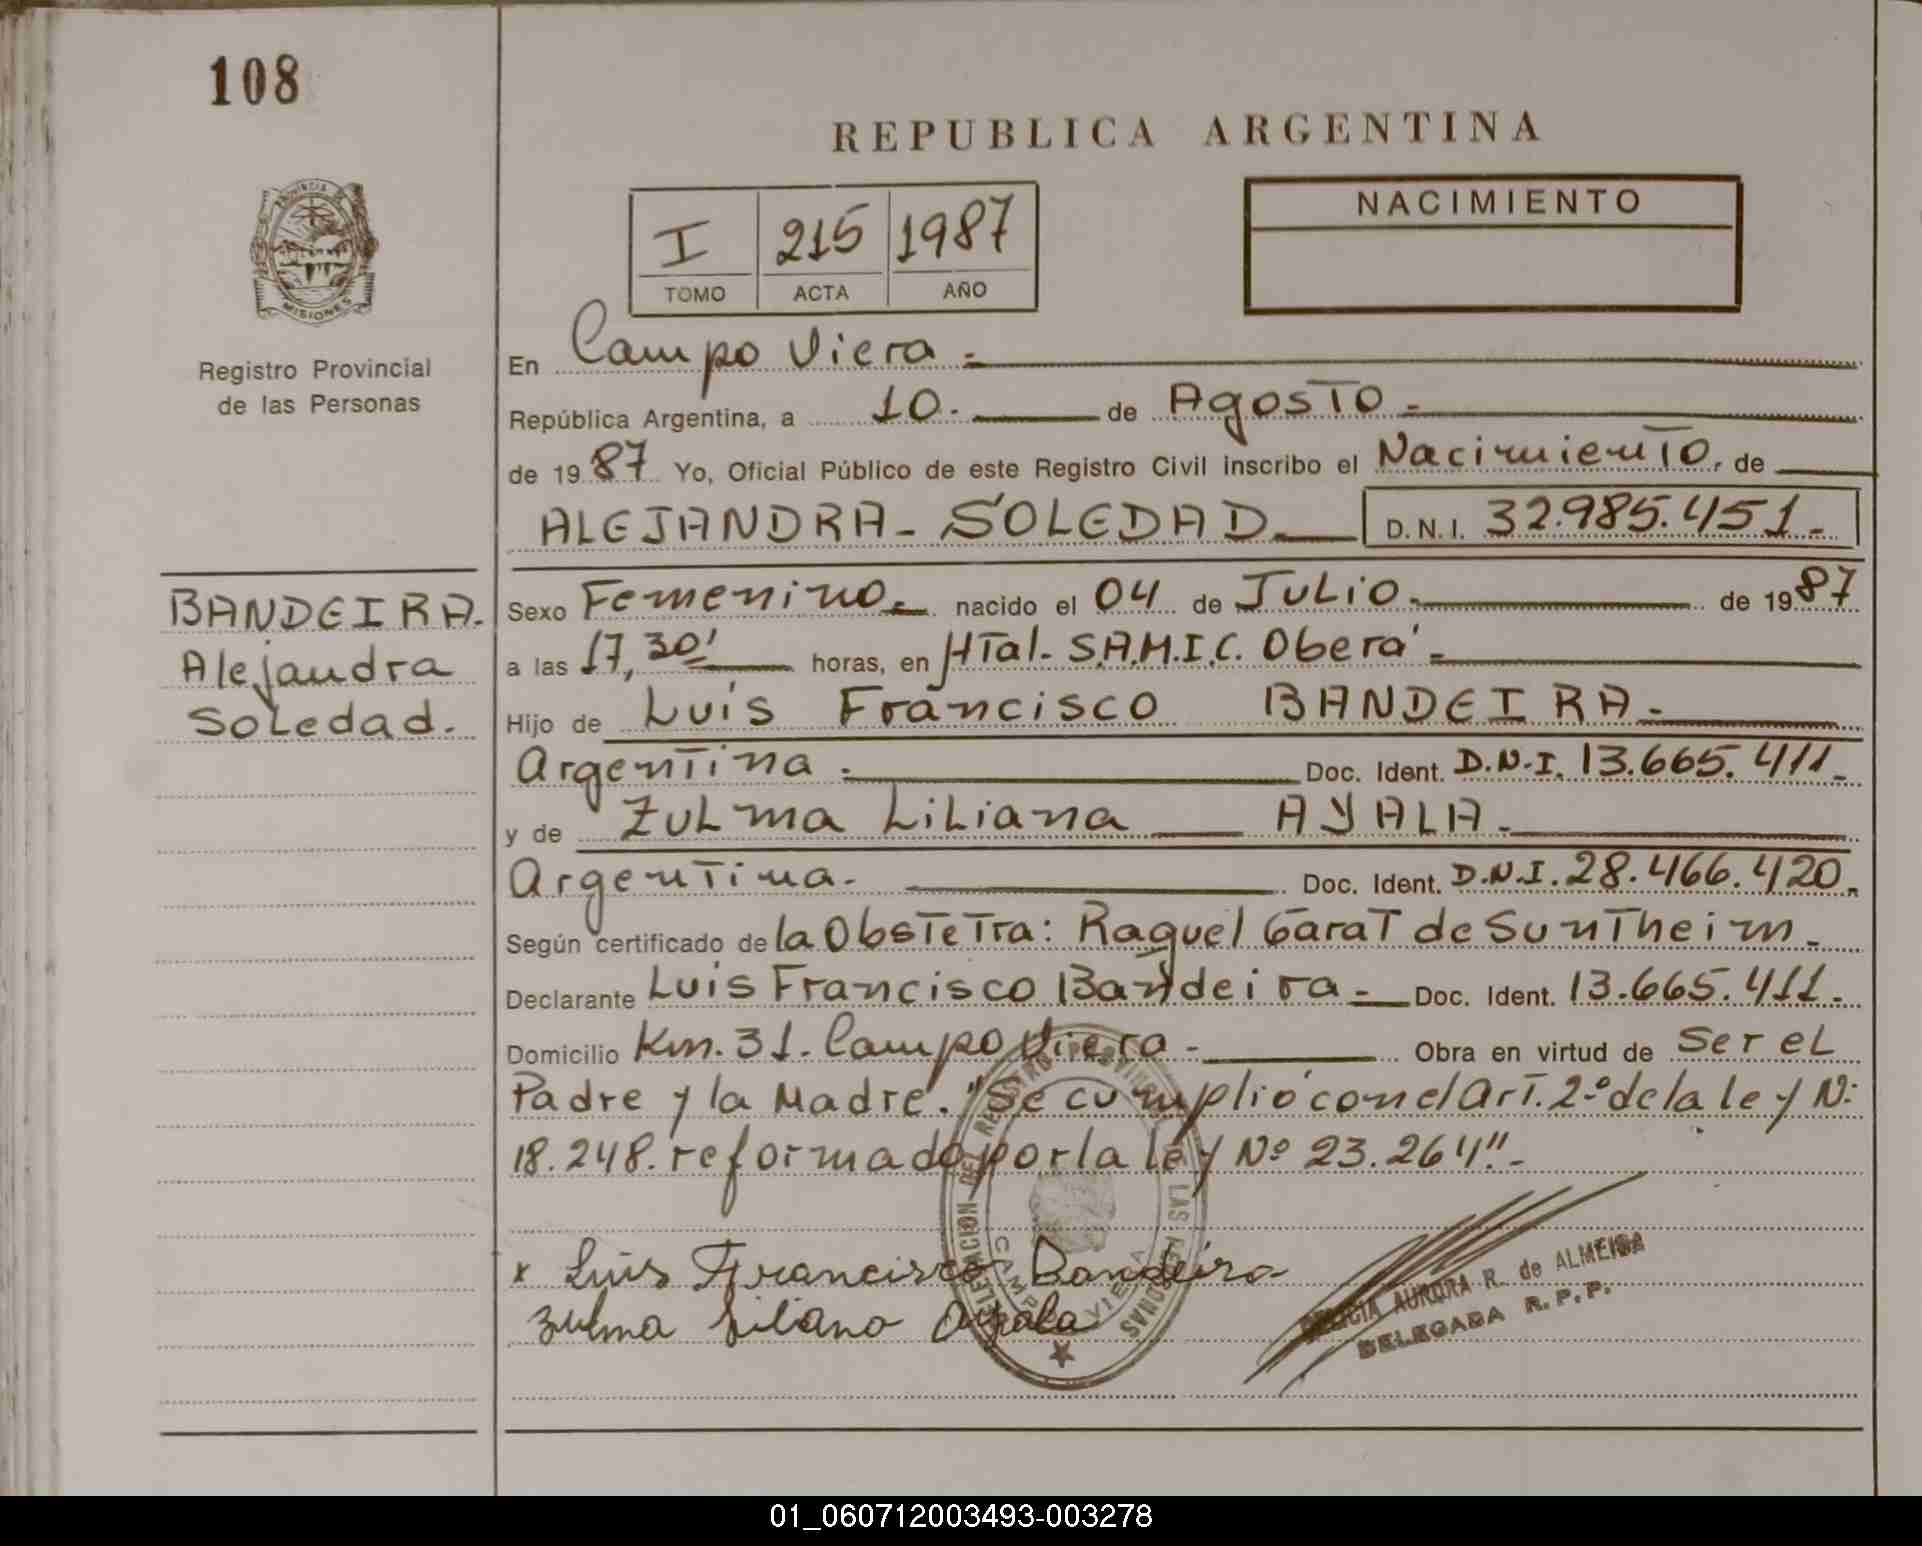 108
REPUBLICA ARGENTINA
PROVINCIA DE
MISIONES
Registro Provincial
de las Personas
I 215 1987
TOMO ACTA AÑO
NACIMIENTO
En Campo Viera.-
República Argentina, a 10.- de Agosto.-
de 19 87 Yo, Oficial Público de este Registro Civil inscribo el Nacimiento, de
ALEJANDRA- SOLEDAD.- D.N.I. 32.985.451.-
BANDEIRA.
Alejandra
Soledad.
Sexo Femenino.- nacido el 04 de Julio.- de 19 87
a las 17,30' horas, en Htal. S.A.M.I.C. Oberá.-
Hijo de Luis Francisco BANDEIRA.-
Argentina.- Doc. Ident. D.N.I. 13.665.411.-
y de Zulma Liliana AYALA.-
Argentina.- Doc. Ident. D.N.I. 28.466.420.
Según certificado de la Obstetra: Raquel Garat de Suntheim.-
Declarante Luis Francisco Bandeira.- Doc. Ident. 13.665.411.-
Domicilio Km. 31. Campo Viera.- Obra en virtud de ser el
Padre y la Madre. "Se cumplió con el Art. 2º de la ley N:
18.248. reformado por la ley Nº 23.264".-
x Luis Francisco Bandeira
Zulma Liliana Ayala
DELEGACION DEL REGISTRO PROVINCIAL DE LAS PERSONAS
CAMPO VIERA
AURORA R. de ALMEIDA
DELEGADA R.P.P.
01_060712003493-003278